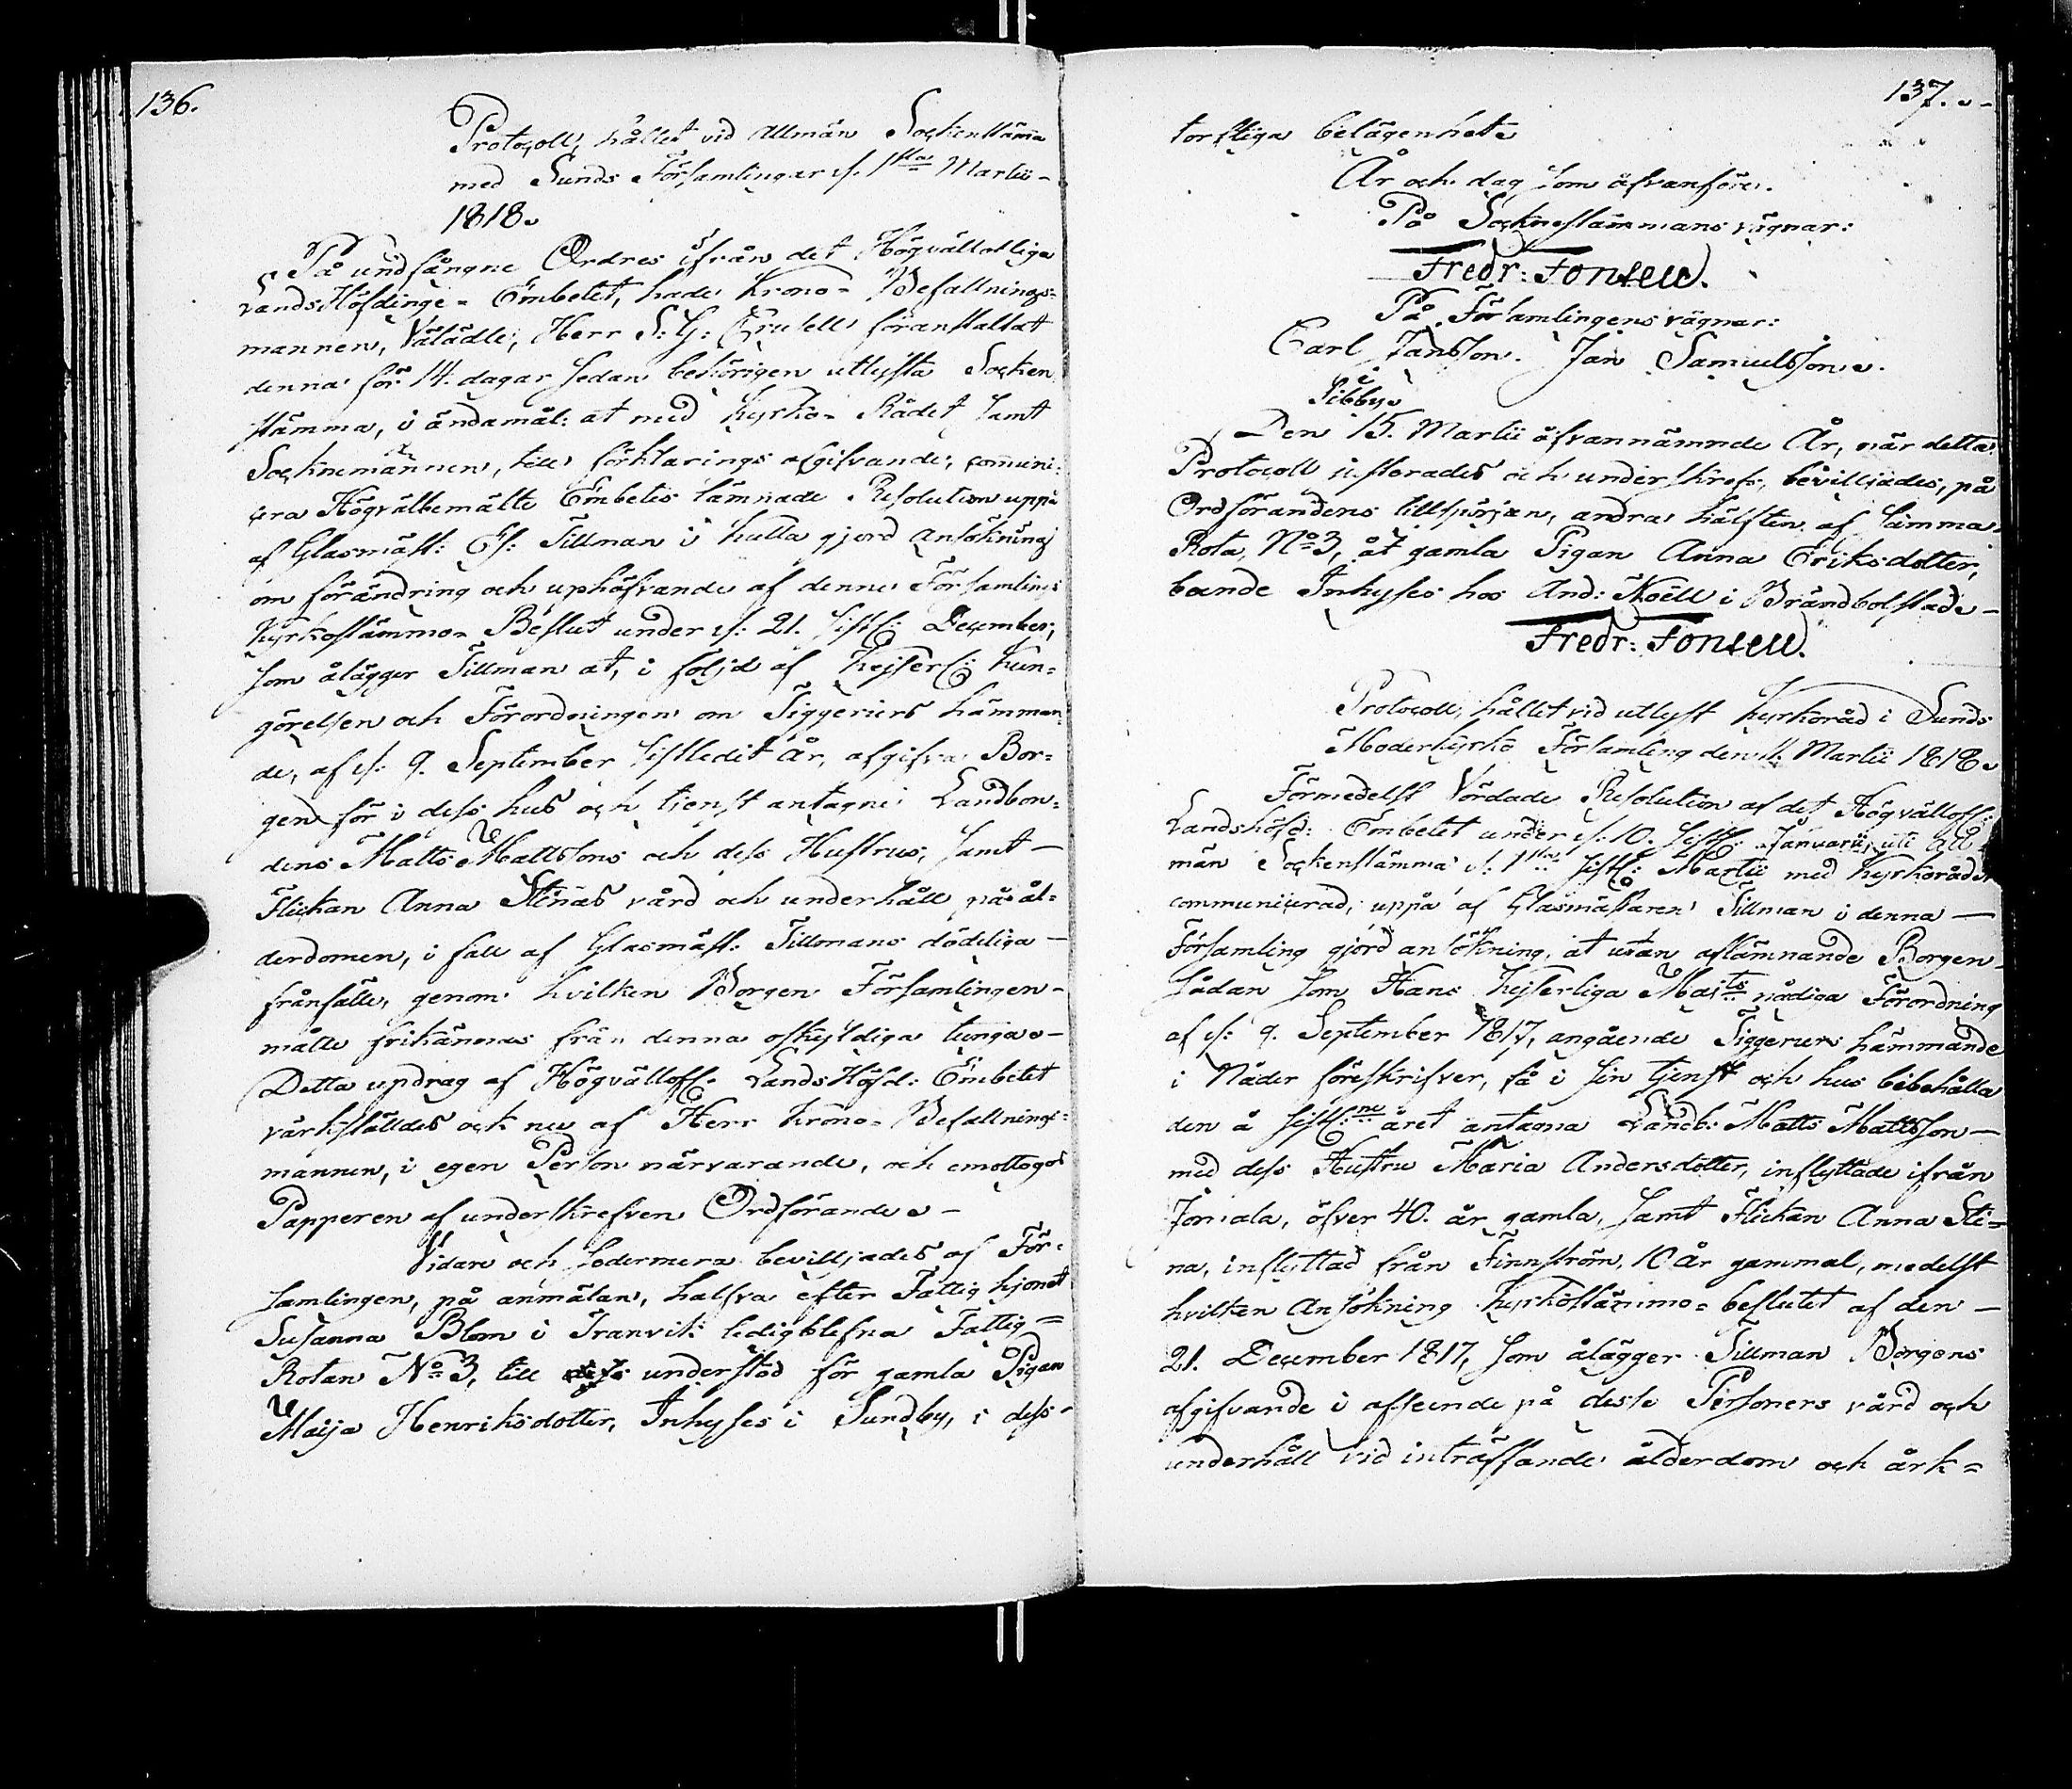 136.
Protocoll, hållet vid Allmän Sockenstäma
med Sunds Församlingar d. 1sta Martii
1818.
På undfångne Ordres ifrån det Högvällofliga
Lands Höfdinge-Embetet, hade Krono-Befallnings-
mannen, Välädle, Herr S: G: Crusell föranstaltat
denna för 14. dagar sedan behörigen utlysta Socken
stämma, i ändamål: at med Kyrko-Rådet samt
Socknemännen, till förklarings afgifvande, communi-
cera Högvälbemälte Embetes lämnade Resolution uppå
af Glasmäst: Tillman i hulla gjord Ansökning
om förändring och uphäfvande af denne Församlings
Kyrkostämmo-Beslut under d: 21. sistl: December,
som ålägger Tillman at, i följd af Kejserl: Kun-
görelsen och Förordningen om Tiggeriers hämman-
de, af d. 9. September sistledit år, afgifva Bor-
gen för i dess hus och tienst antagne Landbon-
dens Matts Mattssons och dess Hustrus, samt
Flickan Anna Stinas vård och underhåll på ål-
derdomen, i fall af Glasmäst: Tillmans dödeliga
frånfälle, genom hvilken Borgen Församlingen
måtte frikännas från denna oskyldiga tunga.
Detta updrag af Högvällofl. Lands Höfd: Embetet
värkställdes ock nu af Herr Krono-Befallnings-
mannen, i egen Person närvarande, och emottogos
Papperen af underskrefven Ordförande.
Vidare och sedermera bevilljades af För-
samlingen, på anmälan, halfva efter Fattighjonet
Susanna Blom i Tranvik ledigblefna Fattig-
Rotan No 3, till understöd för gamla Pigan
Maija Henriksdotter, Inhyses i Sundby, i dess
137.
torftiga belägenhet.
År och dag som ofvanföre.
På Sockenstämmans vägnar:
Fredr: Fonsell.
På Församlingens vägnar:
Carl Jansson. Jan Samuelsson.
i
Tibby.
Den 15. Martii ofvannämnde År, när detta
Protocoll justerades och underskrefs, bevilljades, på
Ordförandens tillspörjan, andra hälften af samma
Rota No 3, åt gamla Pigan Anna Eriksdotter,
boende Inhyses hos And: Noëll i Brändbolstad.
Fredr: Fonsell.
Protocoll, hållit vid utlyst Kyrkoråd i Sunds
Moderkyrko Församling den 11. Martii 1818.
Förmedelst Vördade Resolution af det Högvällofl:
Landshöfd: Embetet under d: 10. sistl: Januarii, uti All-
män Sockenstämma d: 1sta sistl: Martii med Kyrkorådet
communicerad, uppå af Glasmästaren Tillman i denna
Församling gjord ansökning, at utan aflämnande Borgen
sådan som Hans Kejserliga Maj:ts nådiga Förordning
af d: 9. September 1817, angående Tiggeriers hämmande
i Nåder föreskrifver, få i sin tjenst och hus bibehålla
den å sistl:ne året antagna Landb: Matts Mattsson
med dess Hustru Maria Andersdotter, inflyttade ifrån
Jomala, öfver 40. år gamla, samt Flickan Anna Sti-
na, inflyttad från Finnström, 10 år gammal, medelst
hvilken Ansökning Kyrkostämmo-beslutet af den
21. December 1817, som ålägger Tillman Borgens
afgifvande i afseende på desse Personers vård och
underhåll vid inträffande ålderdom och årk-